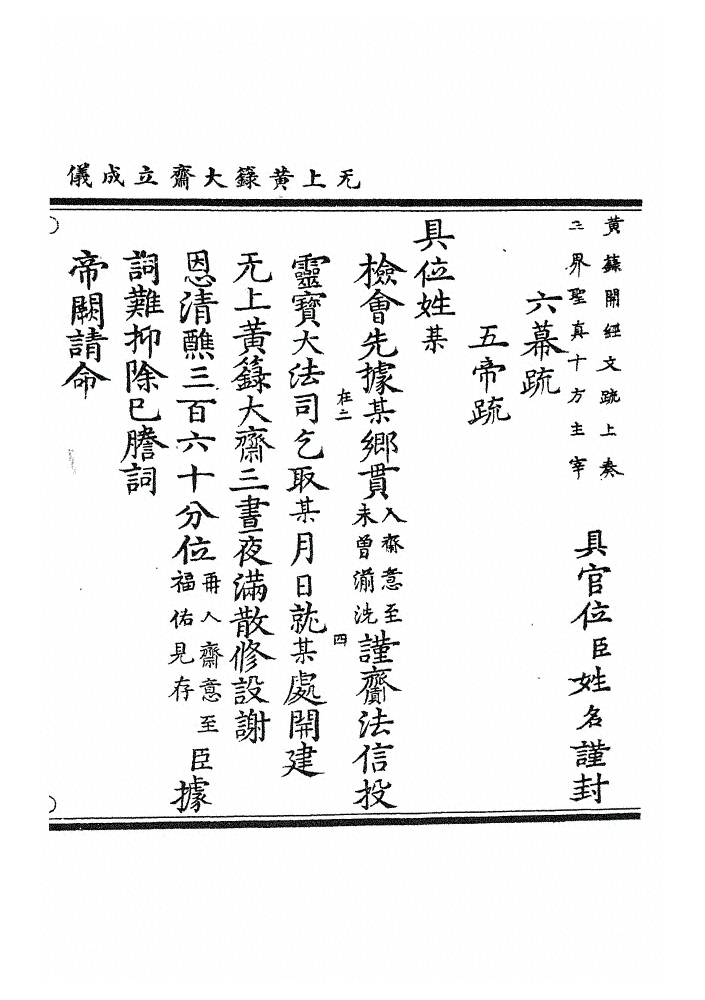 无上黄籙大齋立成儀
黄籙開經文疏上奏
三界聖真十方主宰
具官位臣姓名謹封
六幕疏
五帝疏
具位姓某
檢會先據某鄉貫入齋意至未曾湔洗謹齎法信投
在二
四
靈寶大法司乞取某月日就某處開建
无上黄籙大齋三晝夜滿散修設謝
恩清醮三百六十分位再入齋意至福佑見存臣據
詞難抑除已謄詞
帝闕請命